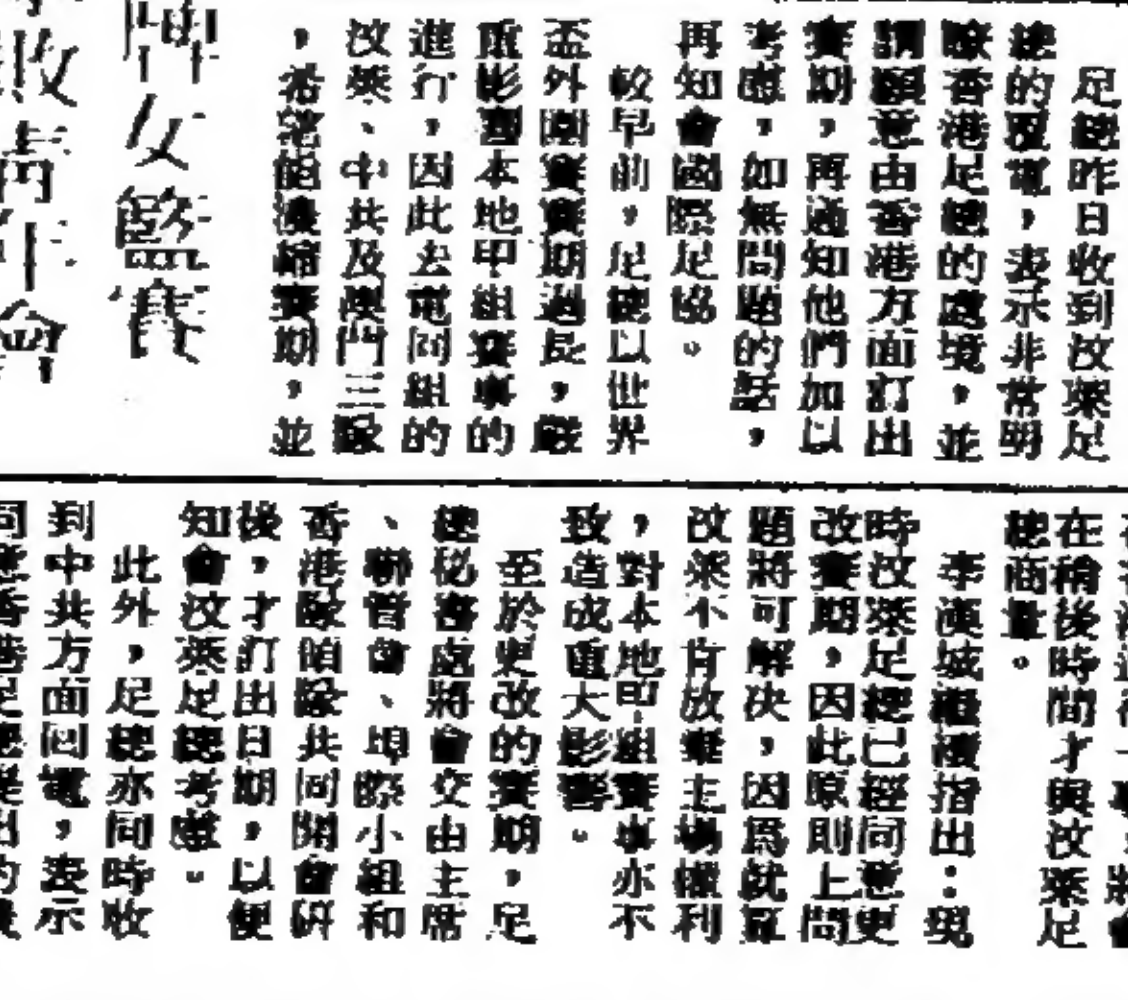 足總昨日收到汶萊足
總的覆電，表示非常明
瞭香港足總的處境，並
謂願意由香港方面訂出
賽期，再通知他們加以
考慮，如無問題的話，
再知會國際足協。
較早前，足總以世界
盃外圍賽賽期過長，嚴
重影響本地甲組賽事的
進行，因此去電同組的
汶萊、中共及澳門三隊
，希望能濃縮賽期，並
牌女籃賽
敗青年會
在稍後時間才與汶萊足
總商量。
李漢城繼續指出：現
時汶萊足總已經同意更
改賽期，因此原則上問
題將可解决，因爲就算
汶萊不肯放棄主塲權利
，對本地甲組賽事亦不
致造成重大影響。
至於更改的賽期，足
總秘書處將會交由主席
、聯督會、埠際小組和
香港隊領隊共同開會研
後，才訂出日期，以便
知會汶萊足總考慮。
此外，足總亦同時收
到中共方面回電，表示
同意香港足總